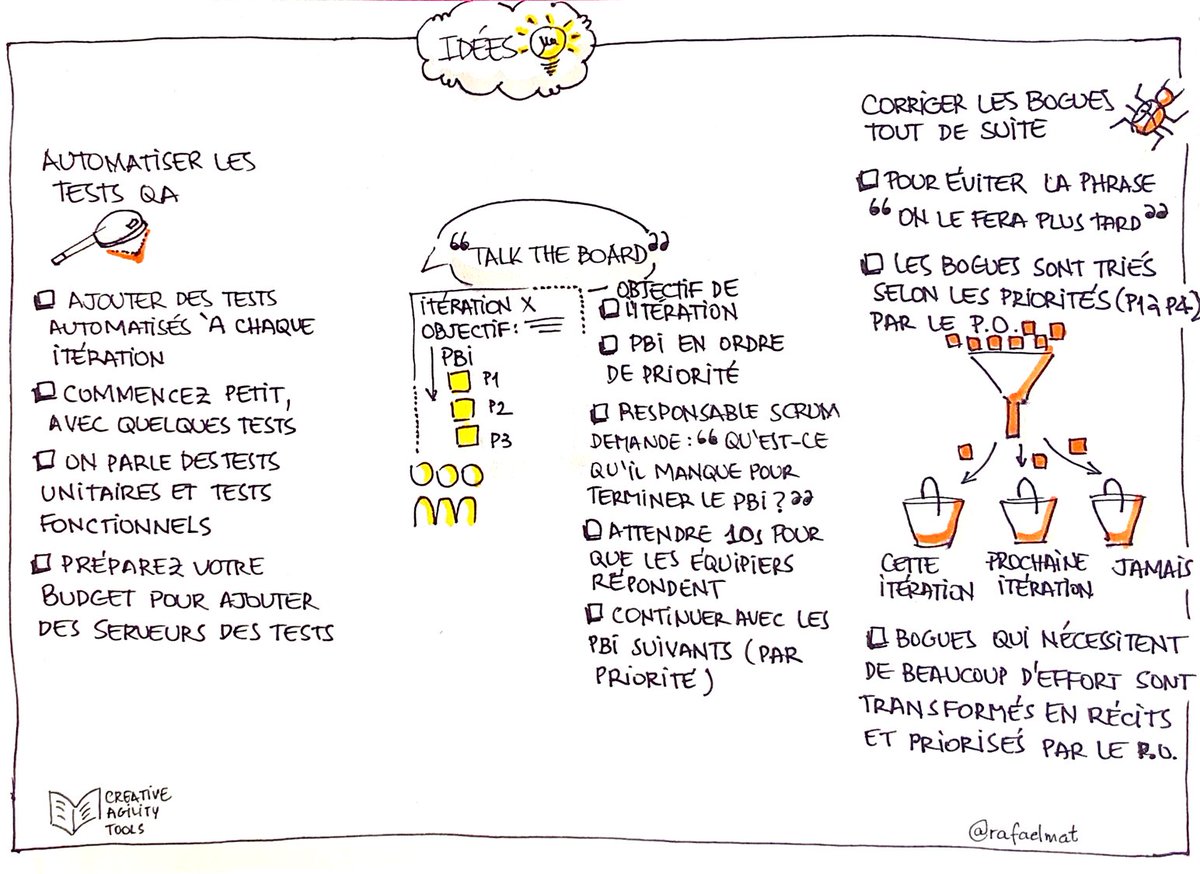 IDÉES
AUTOMATISER LES
TESTS QA
AJOUTER DES TESTS
AUTOMATISÉS À CHAQUE
ITÉRATION
COMMENCEZ PETIT,
AVEC QUELQUES TESTS
ON PARLE DES TESTS
UNITAIRES ET TESTS
FONCTIONNELS
PRÉPAREZ VOTRE
BUDGET POUR AJOUTER
DES SERVEURS DES TESTS
"TALK THE BOARD"
ITÉRATION X
OBJECTIF:
PBI
P1
P2
P3
OBJECTIF DE
L'ITÉRATION
PBI EN ORDRE
DE PRIORITÉ
RESPONSABLE SCRUM
DEMANDE: "QU'EST-CE
QU'IL MANQUE POUR
TERMINER LE PBI?"
ATTENDRE 10s POUR
QUE LES ÉQUIPIERS
RÉPONDENT
CONTINUER AVEC LES
PBI SUIVANTS (PAR
PRIORITÉ)
CORRIGER LES BOGUES
TOUT DE SUITE
POUR ÉVITER LA PHRASE
"ON LE FERA PLUS TARD"
LES BOGUES SONT TRIÉS
SELON LES PRIORITÉS (P1 à P4)
PAR LE P.O.
CETTE
ITÉRATION
PROCHAINE
ITÉRATION
JAMAIS
BOGUES QUI NÉCESSITENT
DE BEAUCOUP D'EFFORT SONT
TRANSFORMÉS EN RÉCITS
ET PRIORISÉS PAR LE P.O.
CREATIVE
AGILITY
TOOLS
@rafaelmat